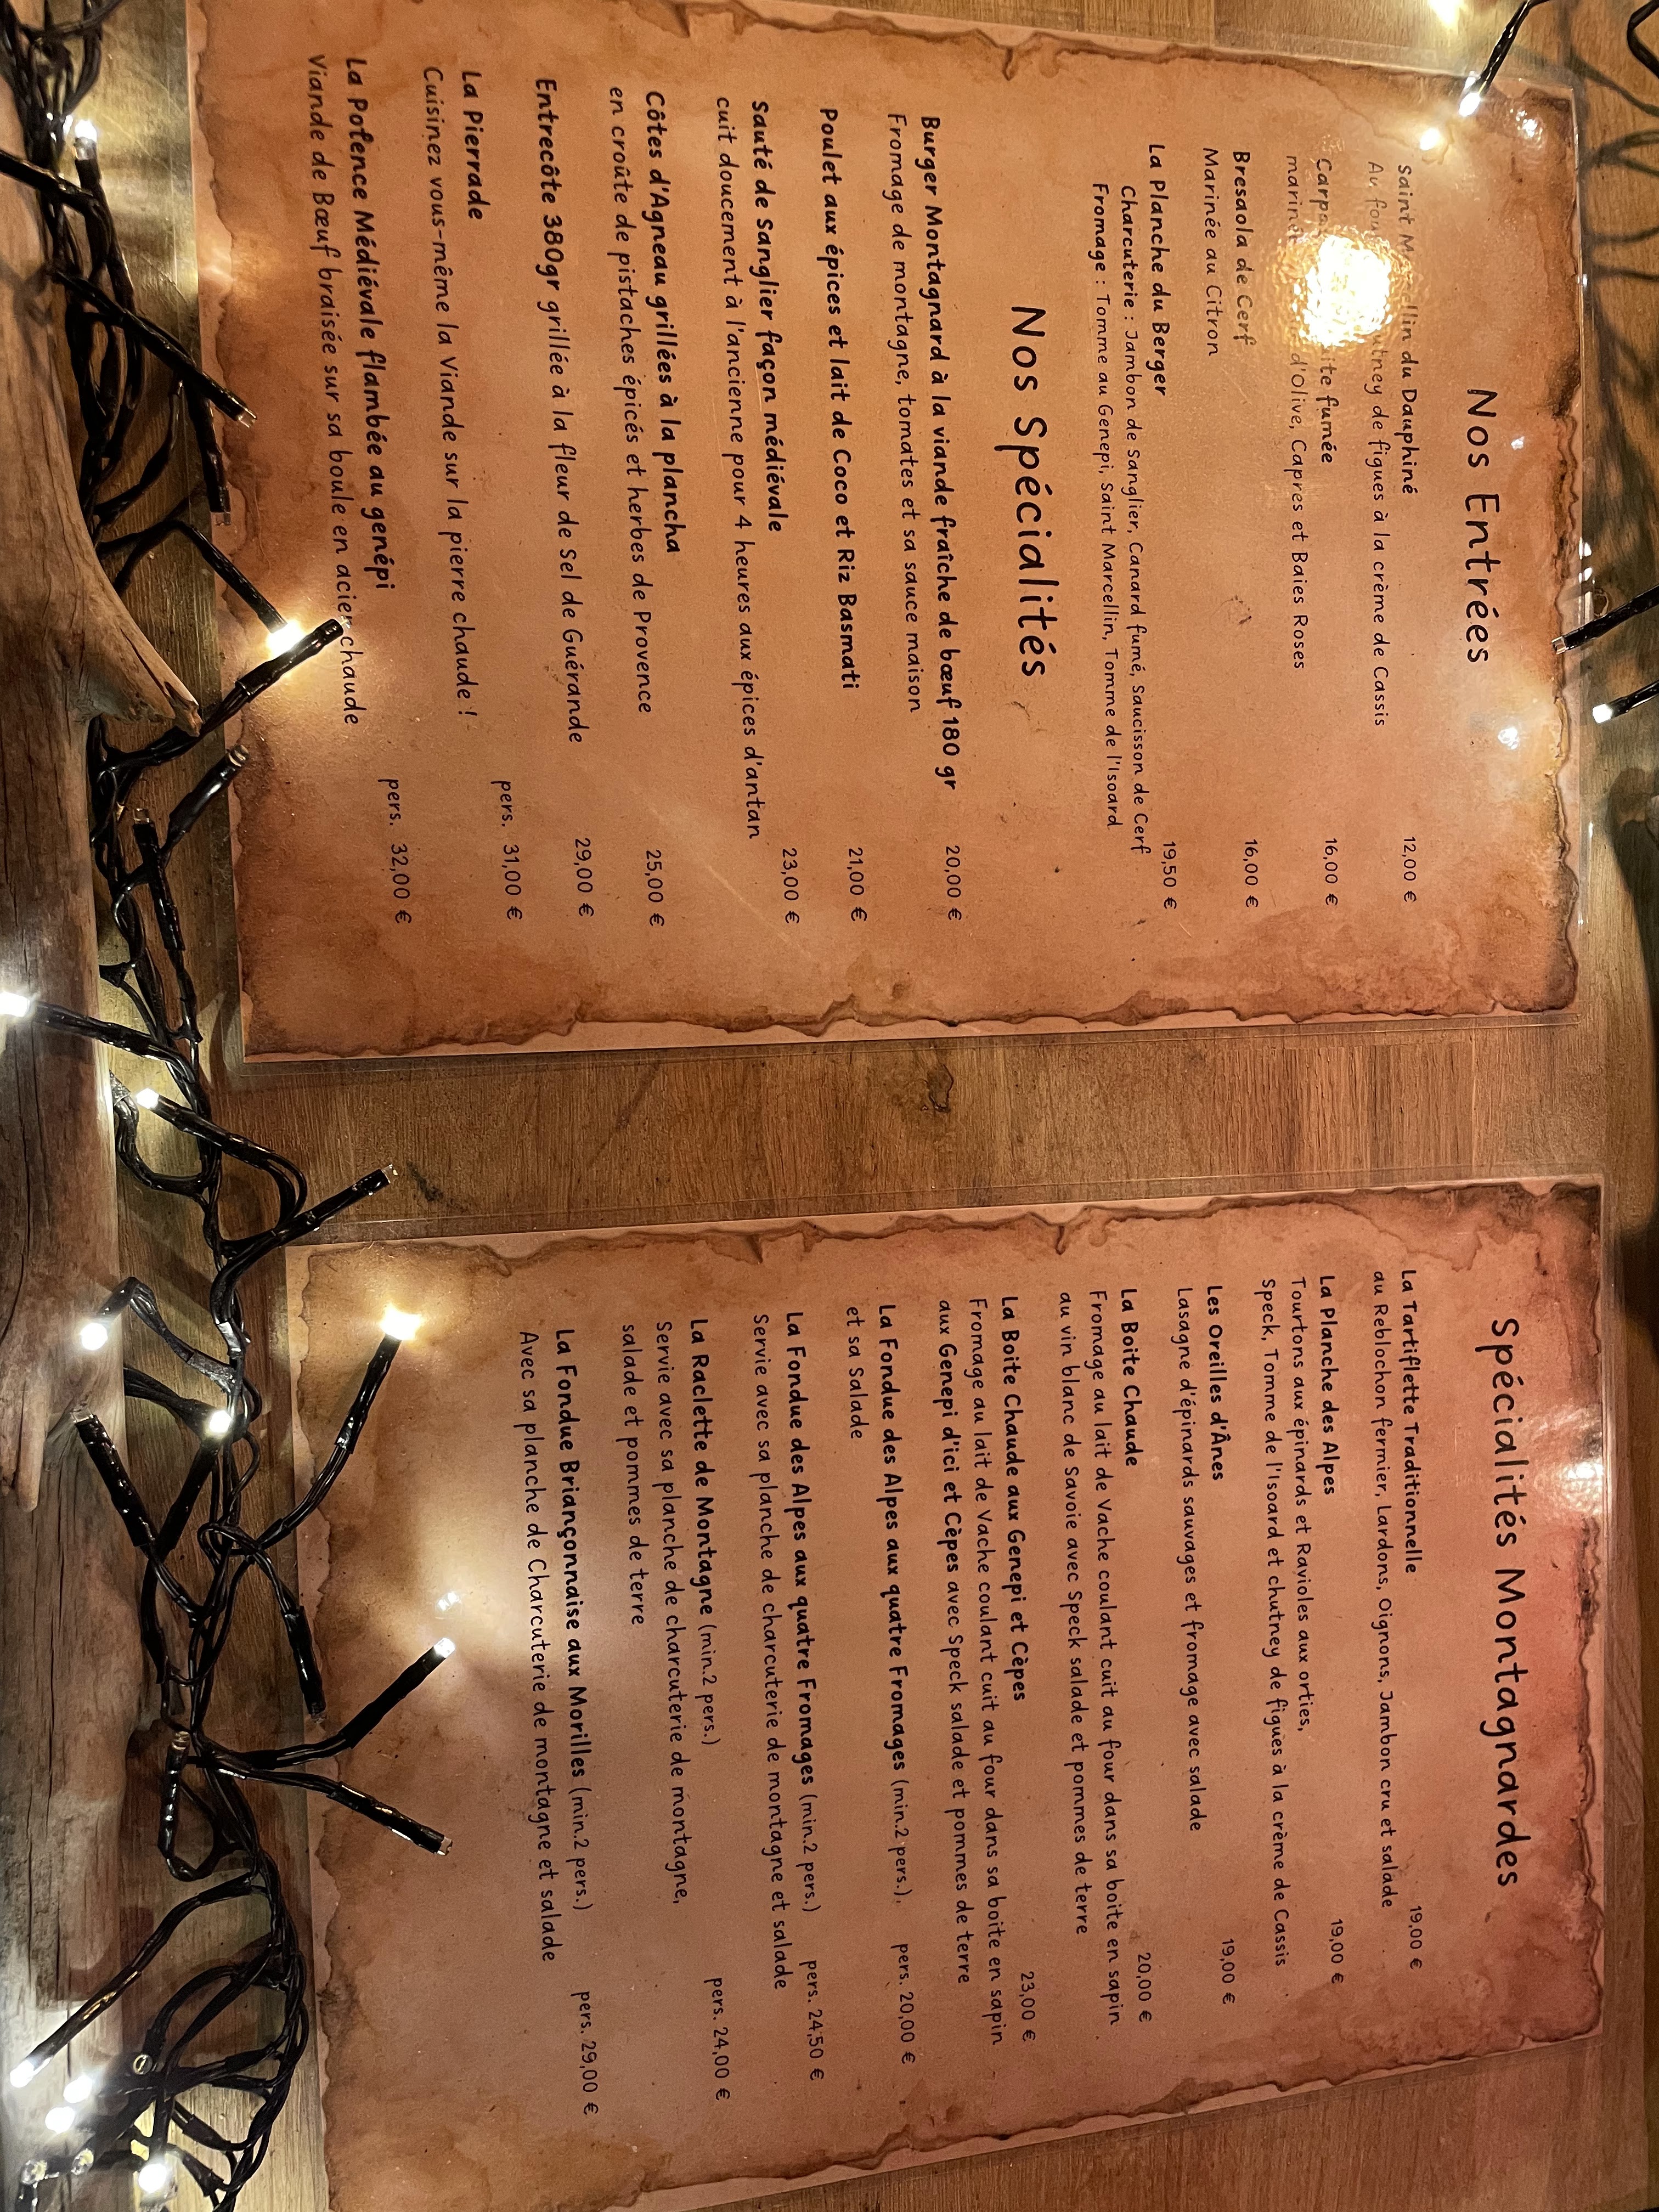 Nos Entrées
Saint du Dauphiné 12,00 €
Au de figues à la crème de Cassis
fumée 16,00 €
d'Olive, Capres et Baies Roses
Bresaola de Cerf 16,00 €
Marinée au Citron
La Planche du Berger 19,50 €
Charcuterie : Jambon de Sanglier, Canard fumé, Saucisson de Cerf
Fromage : Tomme au Genepi, Saint Marcellin, Tomme de l'Isoard
Nos Spécialités
Burger Montagnard à la viande fraîche de bœuf 180 gr 20,00 €
Fromage de montagne, tomates et sa sauce maison
Poulet aux épices et lait de Coco et Riz Basmati 21,00 €
Sauté de Sanglier façon médiévale 23,00 €
cuit doucement à l'ancienne pour 4 heures aux épices d'antan
Côtes d'Agneau grillées à la plancha 25,00 €
en croûte de pistaches épicés et herbes de Provence
Entrecôte 380gr grillée à la fleur de Sel de Guérande 29,00 €
La Pierrade pers. 31,00 €
Cuisinez vous-même la Viande sur la pierre chaude !
La Potence Médiévale flambée au genépi pers. 32,00 €
Viande de Bœuf braisée sur sa boule en acier chaude
Spécialités Montagnardes
La Tartiflette Traditionnelle 19,00 €
au Reblochon fermier, Lardons, Oignons, Jambon cru et salade
La Planche des Alpes 19,00 €
Tourtons aux épinards et Ravioles aux orties,
Speck, Tomme de l'Isoard et chutney de figues à la crème de Cassis
Les Oreilles d'Ânes 19,00 €
Lasagne d'épinards sauvages et fromage avec salade
La Boite Chaude 20,00 €
Fromage au lait de Vache coulant cuit au four dans sa boite en sapin
au vin blanc de Savoie avec Speck salade et pommes de terre
La Boite Chaude aux Genepi et Cèpes 23,00 €
Fromage au lait de Vache coulant cuit au four dans sa boite en sapin
aux Genepi d'ici et Cèpes avec Speck salade et pommes de terre
La Fondue des Alpes aux quatre Fromages (min.2 pers.), pers. 20,00 €
et sa Salade
La Fondue des Alpes aux quatre Fromages (min.2 pers.) pers. 24,50 €
Servie avec sa planche de charcuterie de montagne et salade
La Raclette de Montagne (min.2 pers.) pers. 24,00 €
Servie avec sa planche de charcuterie de montagne,
salade et pommes de terre
La Fondue Briançonnaise aux Morilles (min.2 pers.) pers. 29,00 €
Avec sa planche de Charcuterie de montagne et salade